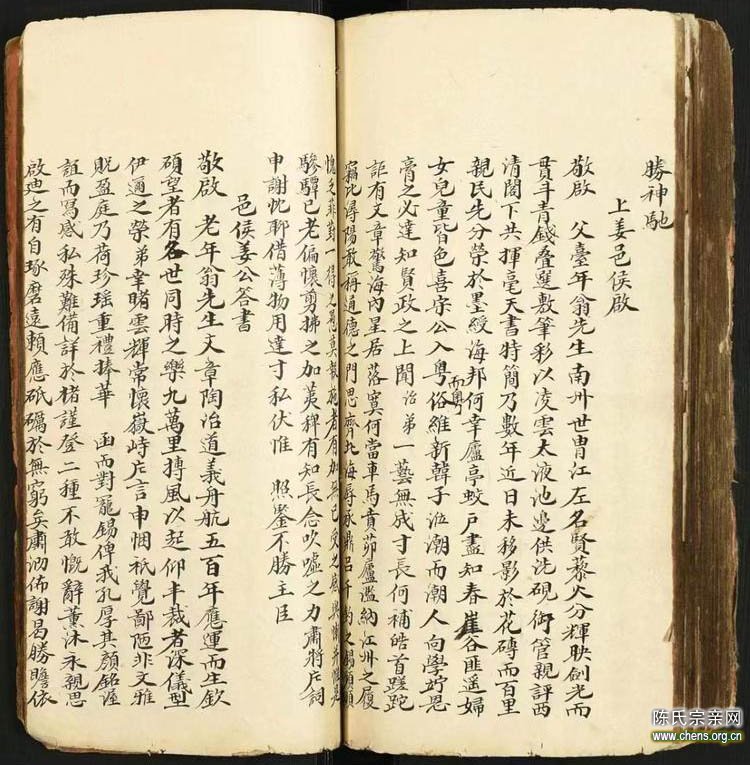 勝神馳
上姜邑侯啟
敬啟　父臺年翁先生南州世胄江左名賢藜火分輝映劍光而
貫斗青錢疊選敷筆彩以凌雲太液池邊供洗硯御管親評西
清閣下共揮毫天書特簡乃數年近日未移影於花磚而百里
親民先分榮於墨綬海邦何幸廬亭蚊戶盡知春崖谷匪遥婦
女兒童皆色喜宗公入粵而粵俗維新韓子涖潮而潮人向學竚思
膏之必達知賢政之上聞治弟一藝無成寸長何補皓首蹉跎
詎有文章驚海內星居落寞何當車馬賁茆廬濫納江州之履
竊比潯陽敢稱通德之門思齊北海辱承鼎呂千鈞之錫
愧乏菲葑一得之愚
驂驛已老偏懷剪拂之加荑稗有知長念吹嘘之力肅將片詞
申謝忱聊借薄物用達寸私伏惟　照鑒不勝主臣
邑侯姜公答書
敬啟　老年翁先生文章陶冶道義舟航五百年應運而生欽
碩望者有名世同時之樂九萬里摶風以起仰丰裁者深儀型
伊邇之榮弟幸睹雲輝常懷嶽峙片言申悃祇覺鄙陋非文雅
貺盈庭乃荷珍瑶重禮捧華　函而對寵錫俾我孔厚其顏銘渥
誼而寫感私殊難備詳於楮謹登二種不敢慨辭薰沐永親思
啟廸之有自琢磨遠賴應砥礪於無窮矣肅泐佈謝曷勝瞻依
陈氏宗亲网
www.chens.org.cn